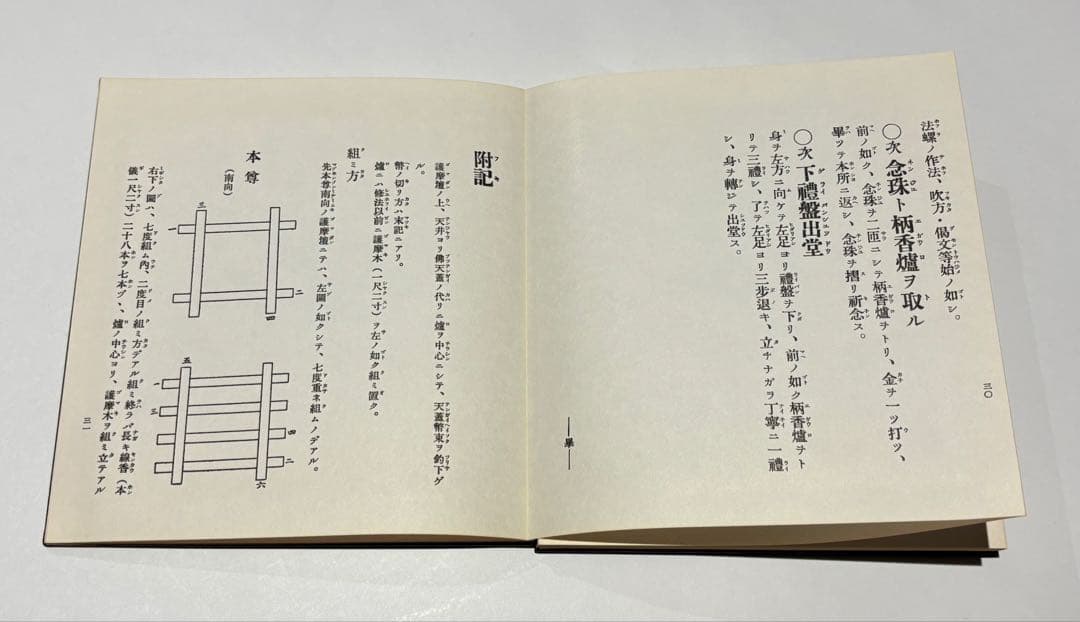 法螺ノ作法、吹方・偈文等始ノ如シ。
○次 念珠ト柄香爐ヲ取ル
前ノ如ク、念珠ヲ二匝ニシテ柄香爐ヲトリ、金ヲ一ツ打ツ、
畢ツテ本所ニ返シ、念珠ヲ摺リ祈念ス。
○次 下禮盤出堂
身ヲ左方ニ向ケテ左足ヨリ禮盤ヲ下リ、前ノ如ク柄香爐ヲト
リテ三禮シ、了テ左足ヨリ三步退キ、立チナガヲ丁寧ニ一禮
シ、身ヲ轉ジテ出堂ス。
―畢―
三〇
附記
護摩壇ノ上、天井ヨリ佛天蓋ノ代リニ爐ヲ中心ニシテ、天蓋幣束ヲ釣下ゲ
ル。
幣ノ切リ方ハ末記ニアリ。
爐ニハ修法以前ニ護摩木(一尺二寸)ヲ左ノ如ク組ミ置ク。
組ミ方
先本尊南向ノ護摩壇ニテハ、左圖ノ如クシテ、七度重ネ組ムノデアル。
本尊
(南向)
三
一
二
四
五
一
三
四
二
六
右下ノ圖ハ、七度組ム內、二度目ノ組ミ方デアル組ミ終ラバ長キ線香(本
儀一尺二寸)二十八本ヲ七本ヅヽ、爐ノ中心ヨリ、護摩木ヲ組ミ立テアル
三一